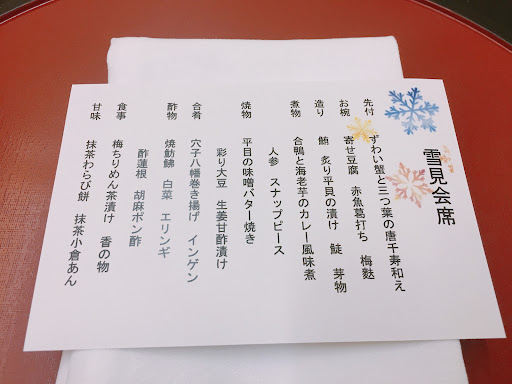 雪見会席
先付 ずわい蟹と三つ葉の唐千寿和え
お椀 寄せ豆腐 赤魚葛打ち 梅麩
造り 鮪 炙り平貝の漬け 鯥 芽物
煮物 合鴨と海老芋のカレー風味煮
人参 スナップピース
焼物 平目の味噌バター焼き
彩り大豆 生姜甘酢漬け
合肴 穴子八幡巻き揚げ インゲン
酢物 焼魴鮄 白菜 エリンギ
酢蓮根 胡麻ポン酢
食事 梅ちりめん茶漬け 香の物
甘味 抹茶わらび餅 抹茶小倉あん